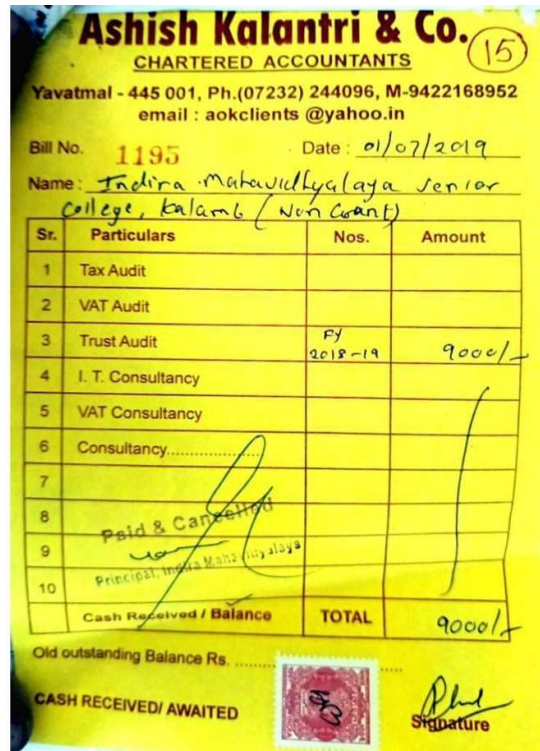 Ashish Kalantri & Co.
15
CHARTERED ACCOUNTANTS
Yavatmal - 445 001, Ph.(07232) 244096, M-9422168952
email : aokclients @yahoo.in
Bill No. 1195 Date : 01/07/2019
Name : Indira Mahavidhyalaya Senior
College, Kalamb (Non Grant)
Sr. Particulars Nos. Amount
1 Tax Audit
2 VAT Audit
3 Trust Audit FY 2018-19 9000/-
4 I. T. Consultancy
5 VAT Consultancy
6 Consultancy..................
7
8
Paid & Cancelled
9
Principal, Indira Mahavidyalaya
10
Cash Received / Balance TOTAL 9000/-
Old outstanding Balance Rs. ..............
CASH RECEIVED/ AWAITED
Signature